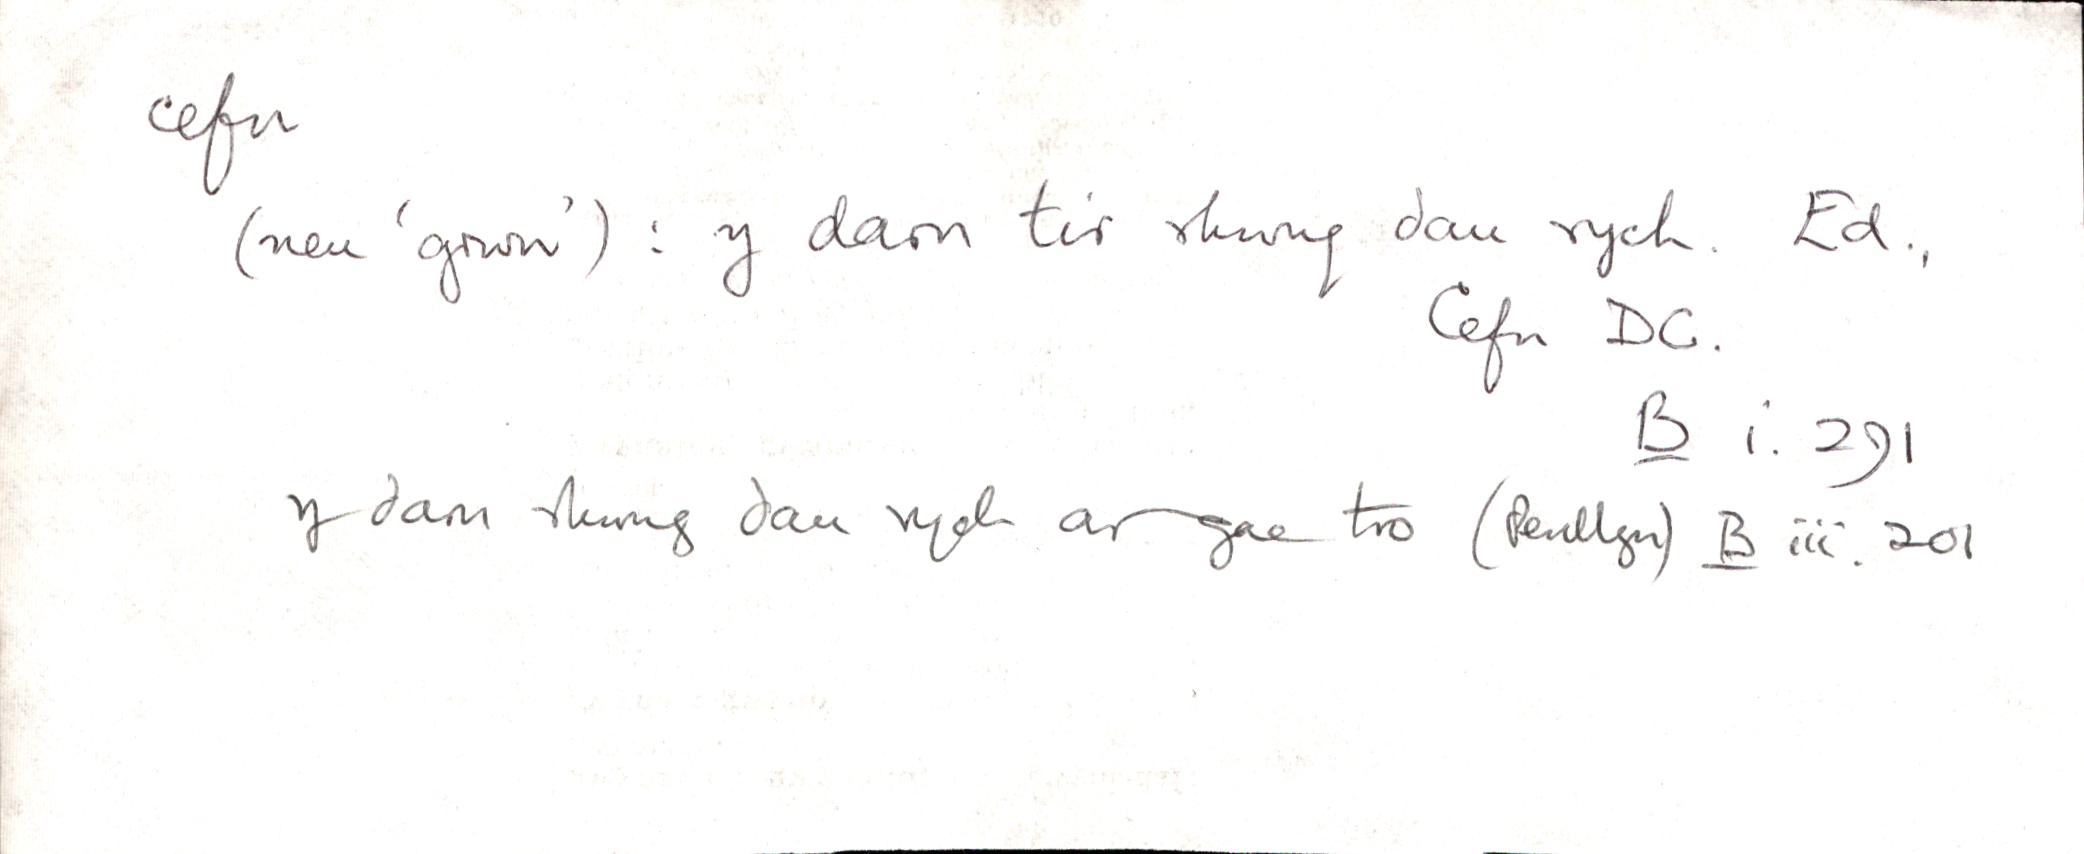 cefn
(neu 'grwn') : y darn tir rhwng dau rych. Ed.,
Cefn DG.
B i. 291
y darn rhwng dau rych ar gae tro (Penllyn) B iii. 201